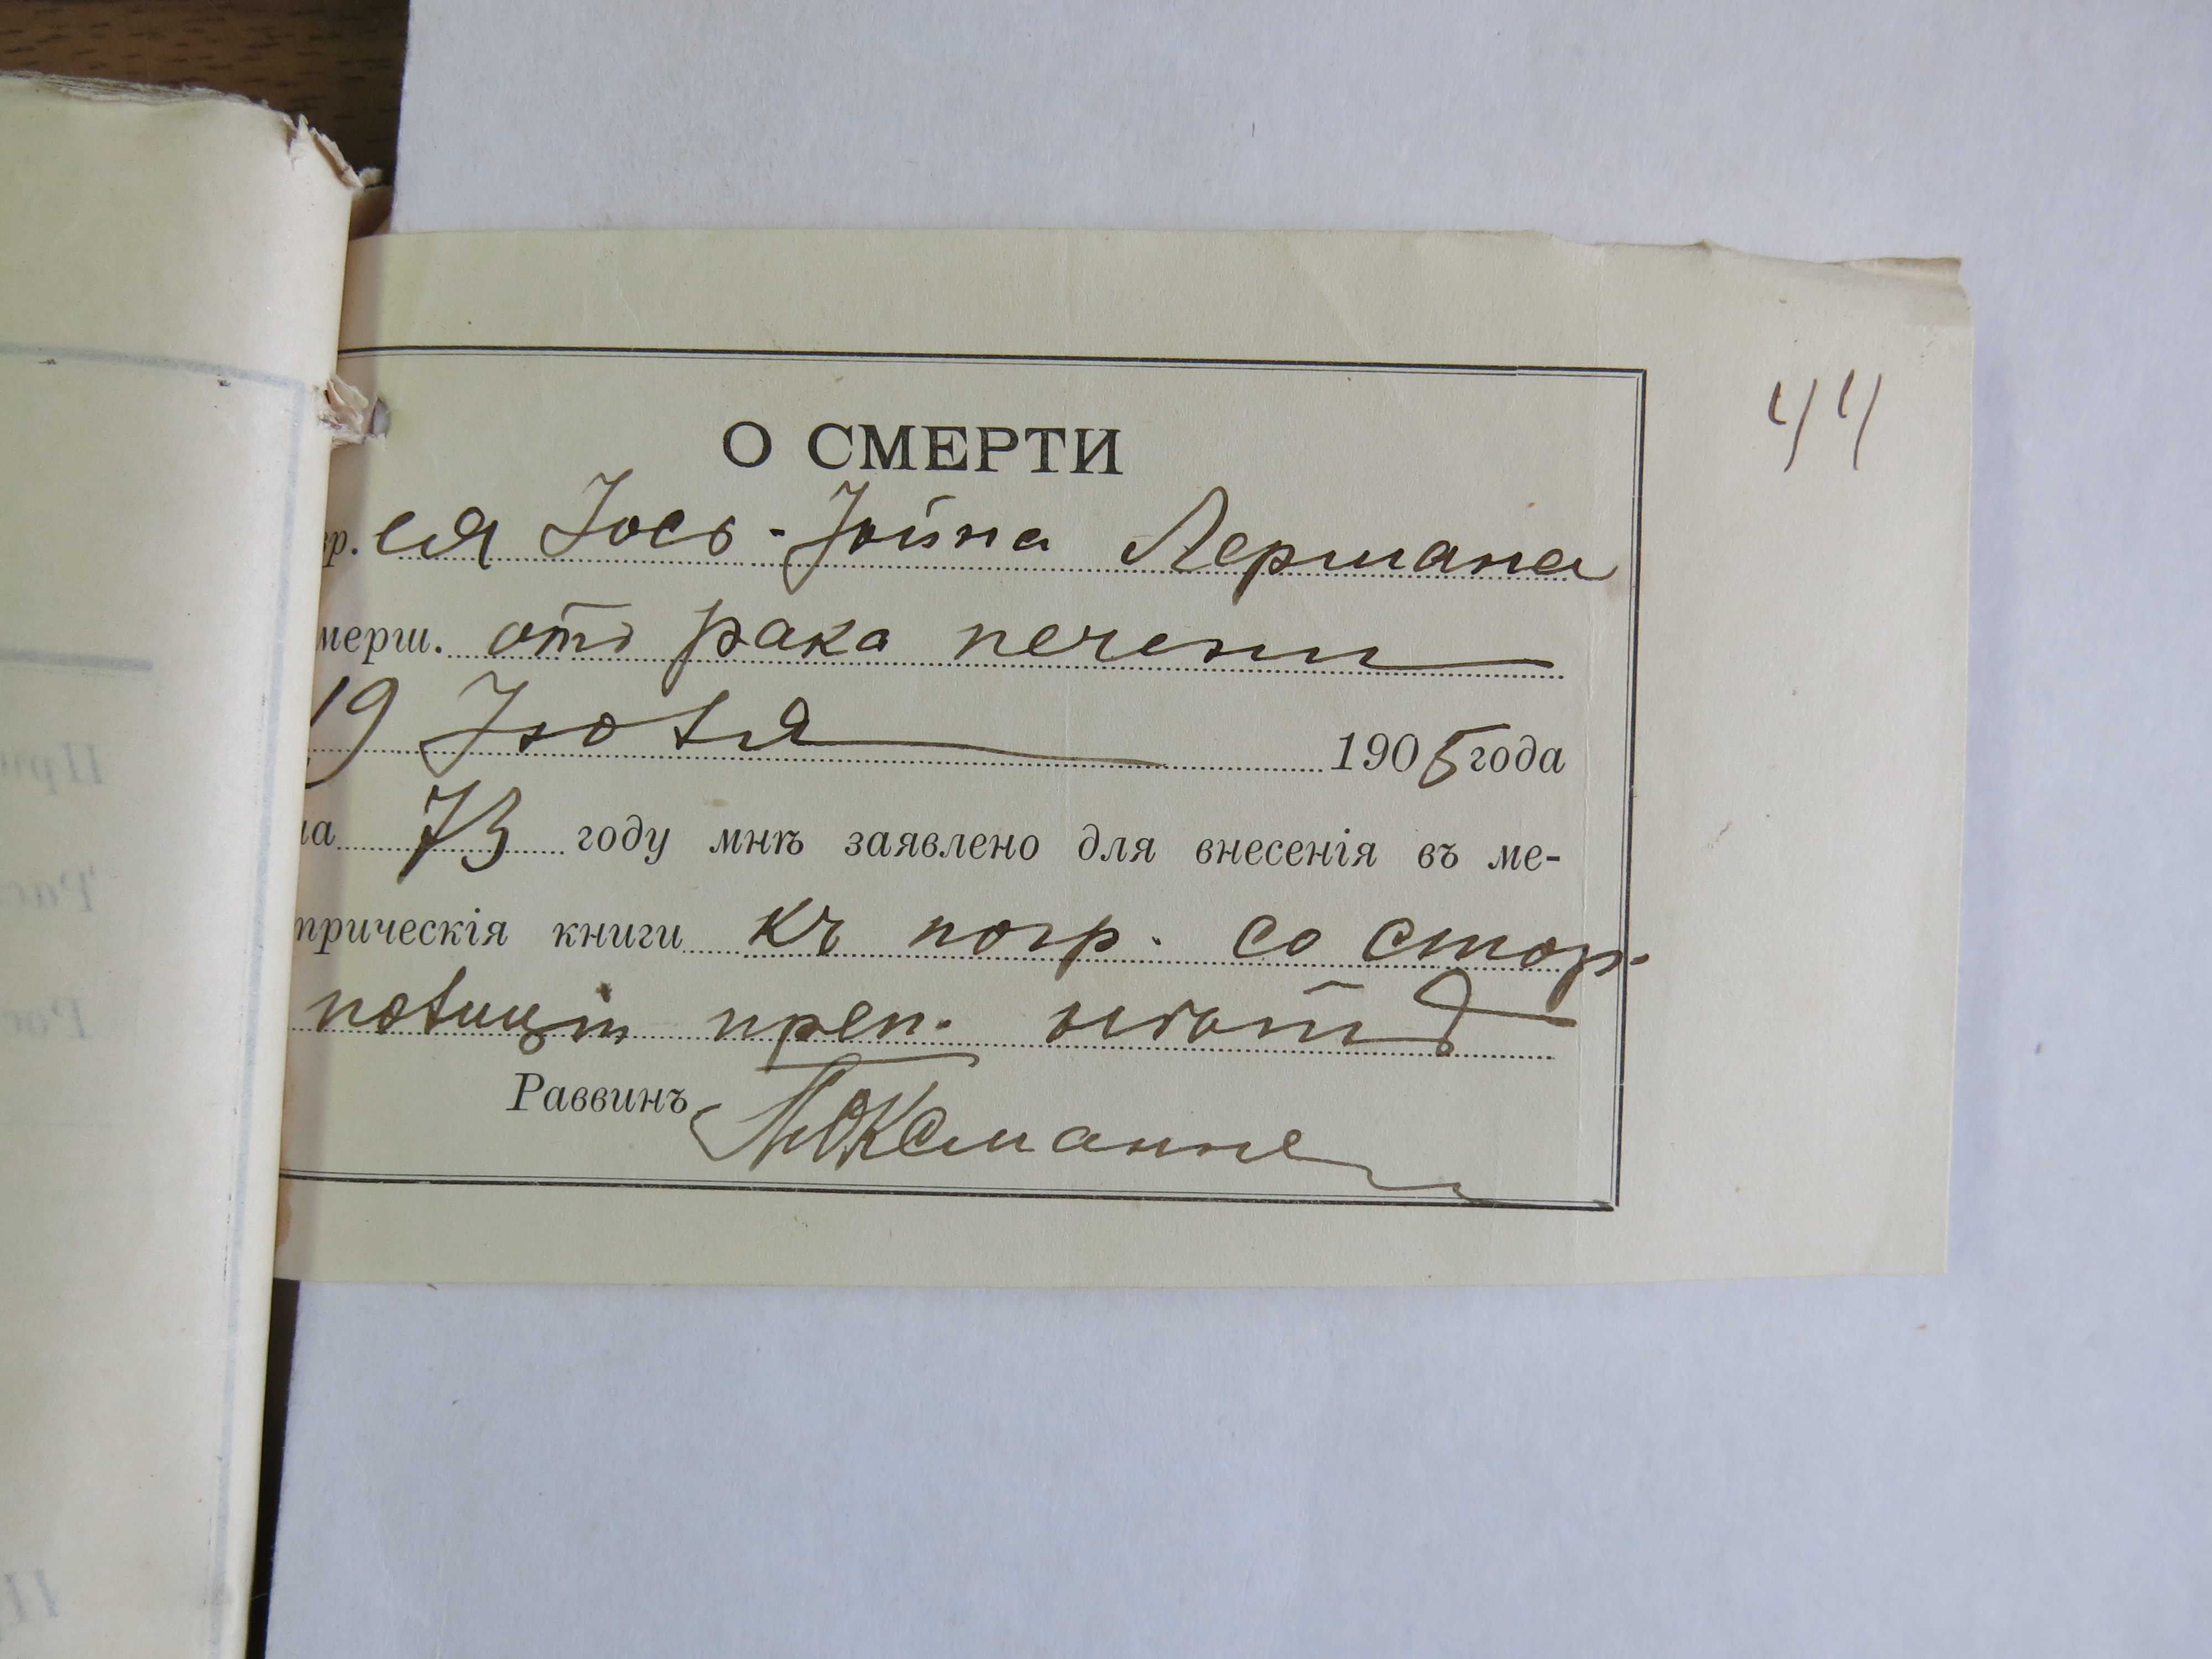 44
О СМЕРТИ
вр. ея Іось-Іойна Лермана
мерш. отъ рака печени
19 Іюля 1905 года
на 73 году мнѣ заявлено для внесенія въ ме-
трическія книги къ погр. со стор.
полиціи преп. нѣтъ
Раввинъ